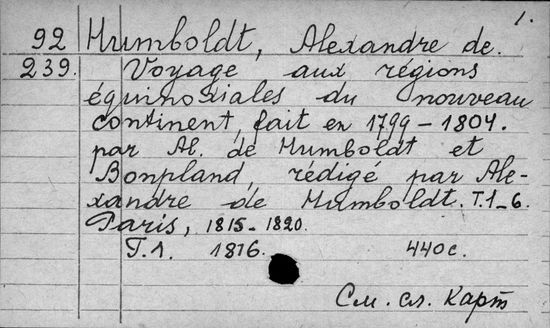 1.
92 Humboldt, Alexandre de.
239. Voyage aux régions
équinoxiales du nouveau
continent, fait en 1799-1804.
par Al. de Humboldt et
Bonpland, rédigé par Ale-
xandre de Humboldt. T.1-6.
Paris, 1815-1820.
T.1. 1816. 440 с.
См. сл. карт